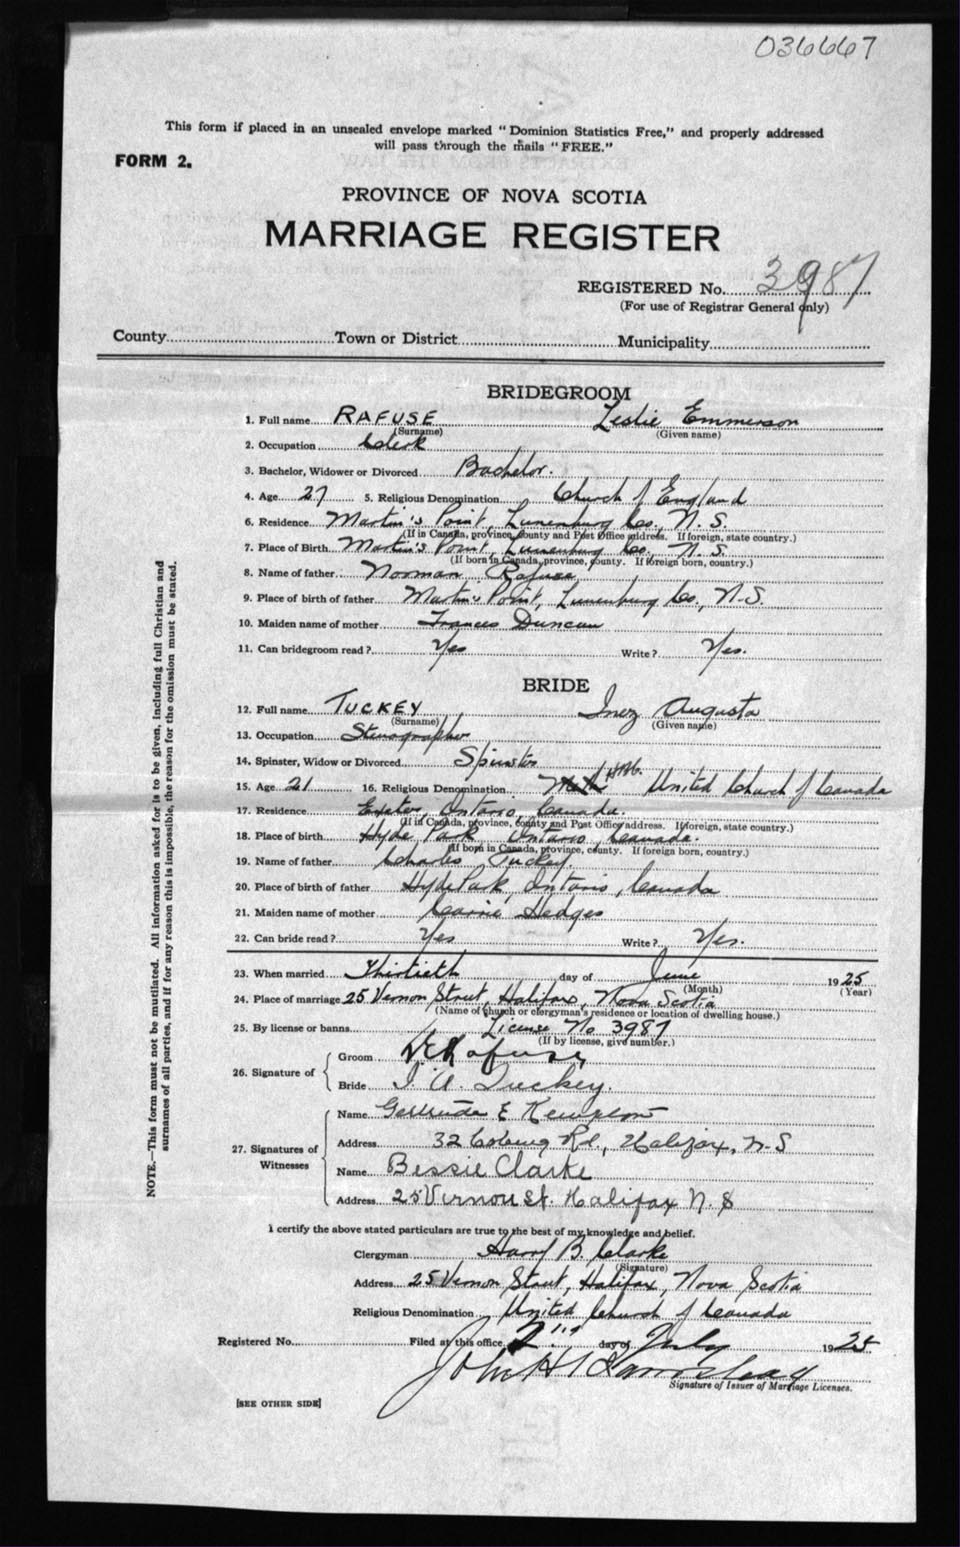 036667
This form if placed in an unsealed envelope marked "Dominion Statistics Free," and properly addressed
will pass through the mails "FREE."
FORM 2.
PROVINCE OF NOVA SCOTIA
MARRIAGE REGISTER
REGISTERED No. 3987
(For use of Registrar General only)
County Town or District Municipality
BRIDEGROOM
1. Full name RAFUSE Leslie Emmerson
(Surname) (Given name)
2. Occupation Clerk
3. Bachelor, Widower or Divorced Bachelor.
4. Age 27 5. Religious Denomination Church of England
6. Residence Martin's Point, Lunenburg Co., N.S.
(If in Canada, province, county and Post Office address. If foreign, state country.)
7. Place of Birth Martin's Point, Lunenburg Co., N.S.
(If born in Canada, province, county. If foreign born, country.)
8. Name of father Norman Rafuse
9. Place of birth of father Martin's Point, Lunenburg Co., N.S.
10. Maiden name of mother Frances Duncan
11. Can bridegroom read? Yes Write? Yes.
BRIDE
12. Full name TUCKEY Inez Augusta
(Surname) (Given name)
13. Occupation Stenographer
14. Spinster, Widow or Divorced Spinster
15. Age 21 16. Religious Denomination HBC. United Church of Canada
17. Residence Exeter, Ontario, Canada
(If in Canada, province, county and Post Office address. If foreign, state country.)
18. Place of birth Hyde Park Ontario, Canada.
(If born in Canada, province, county. If foreign born, country.)
19. Name of father Charles Tuckey
20. Place of birth of father Hyde Park, Ontario, Canada
21. Maiden name of mother Carrie Hedges
22. Can bride read? Yes Write? Yes.
23. When married Thirtieth day of June 1925
(Month) (Year)
24. Place of marriage 25 Vernon Street, Halifax, Nova Scotia
(Name of church or clergyman's residence or location of dwelling house.)
25. By license or banns License No 3987
(If by license, give number.)
26. Signature of Groom L E Rafuse
Bride I. A. Tuckey.
27. Signatures of Witnesses
Name Gertrude E
Address 32 Coburg Rd., Halifax, N.S
Name Bessie Clarke
Address 25 Vernon St. Halifax N.S
I certify the above stated particulars are true to the best of my knowledge and belief.
Clergyman Harry B. Clarke
(Signature)
Address 25 Vernon Street, Halifax, Nova Scotia
Religious Denomination United Church of Canada
Registered No. Filed at this office 2nd day of July 1925
John H
Signature of Issuer of Marriage Licenses.
[SEE OTHER SIDE]
NOTE.—This form must not be mutilated. All information asked for is to be given, including full Christian and
surnames of all parties, and if for any reason this is impossible, the reason for the omission must be stated.